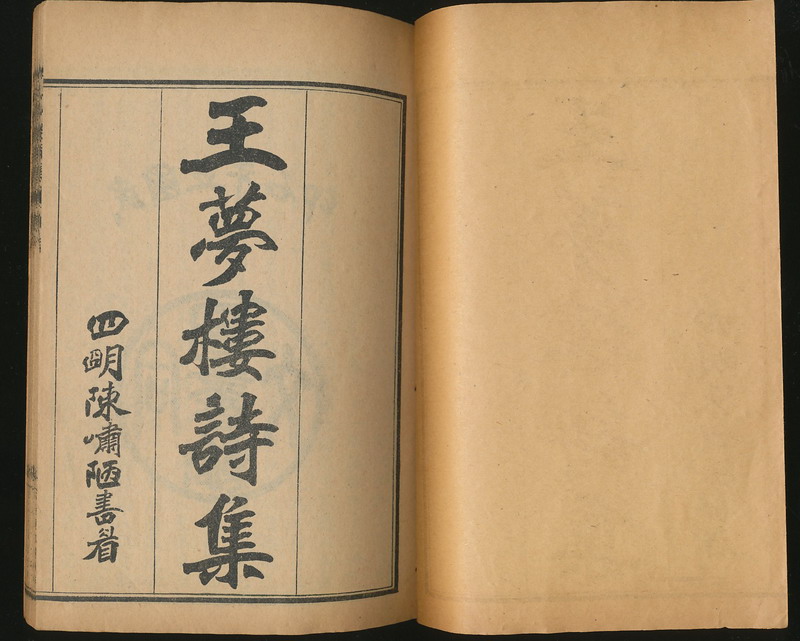 王夢樓詩集
四明陳嘯陋書耑